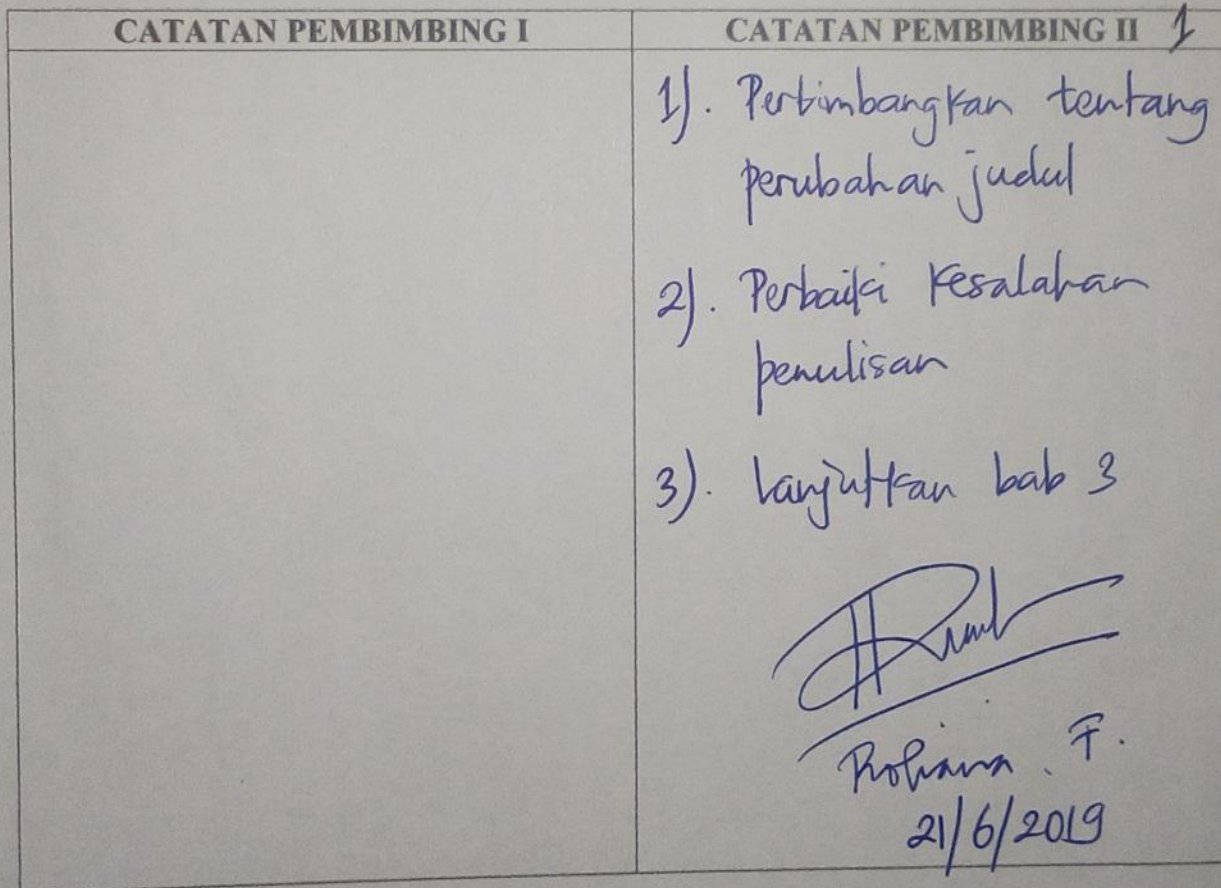 CATATAN PEMBIMBING I
CATATAN PEMBIMBING II 1
1). Pertimbangkan tentang
perubahan judul
2). Perbaiki kesalahan
penulisan
3). lanjutkan bab 3
F.
21/6/2019